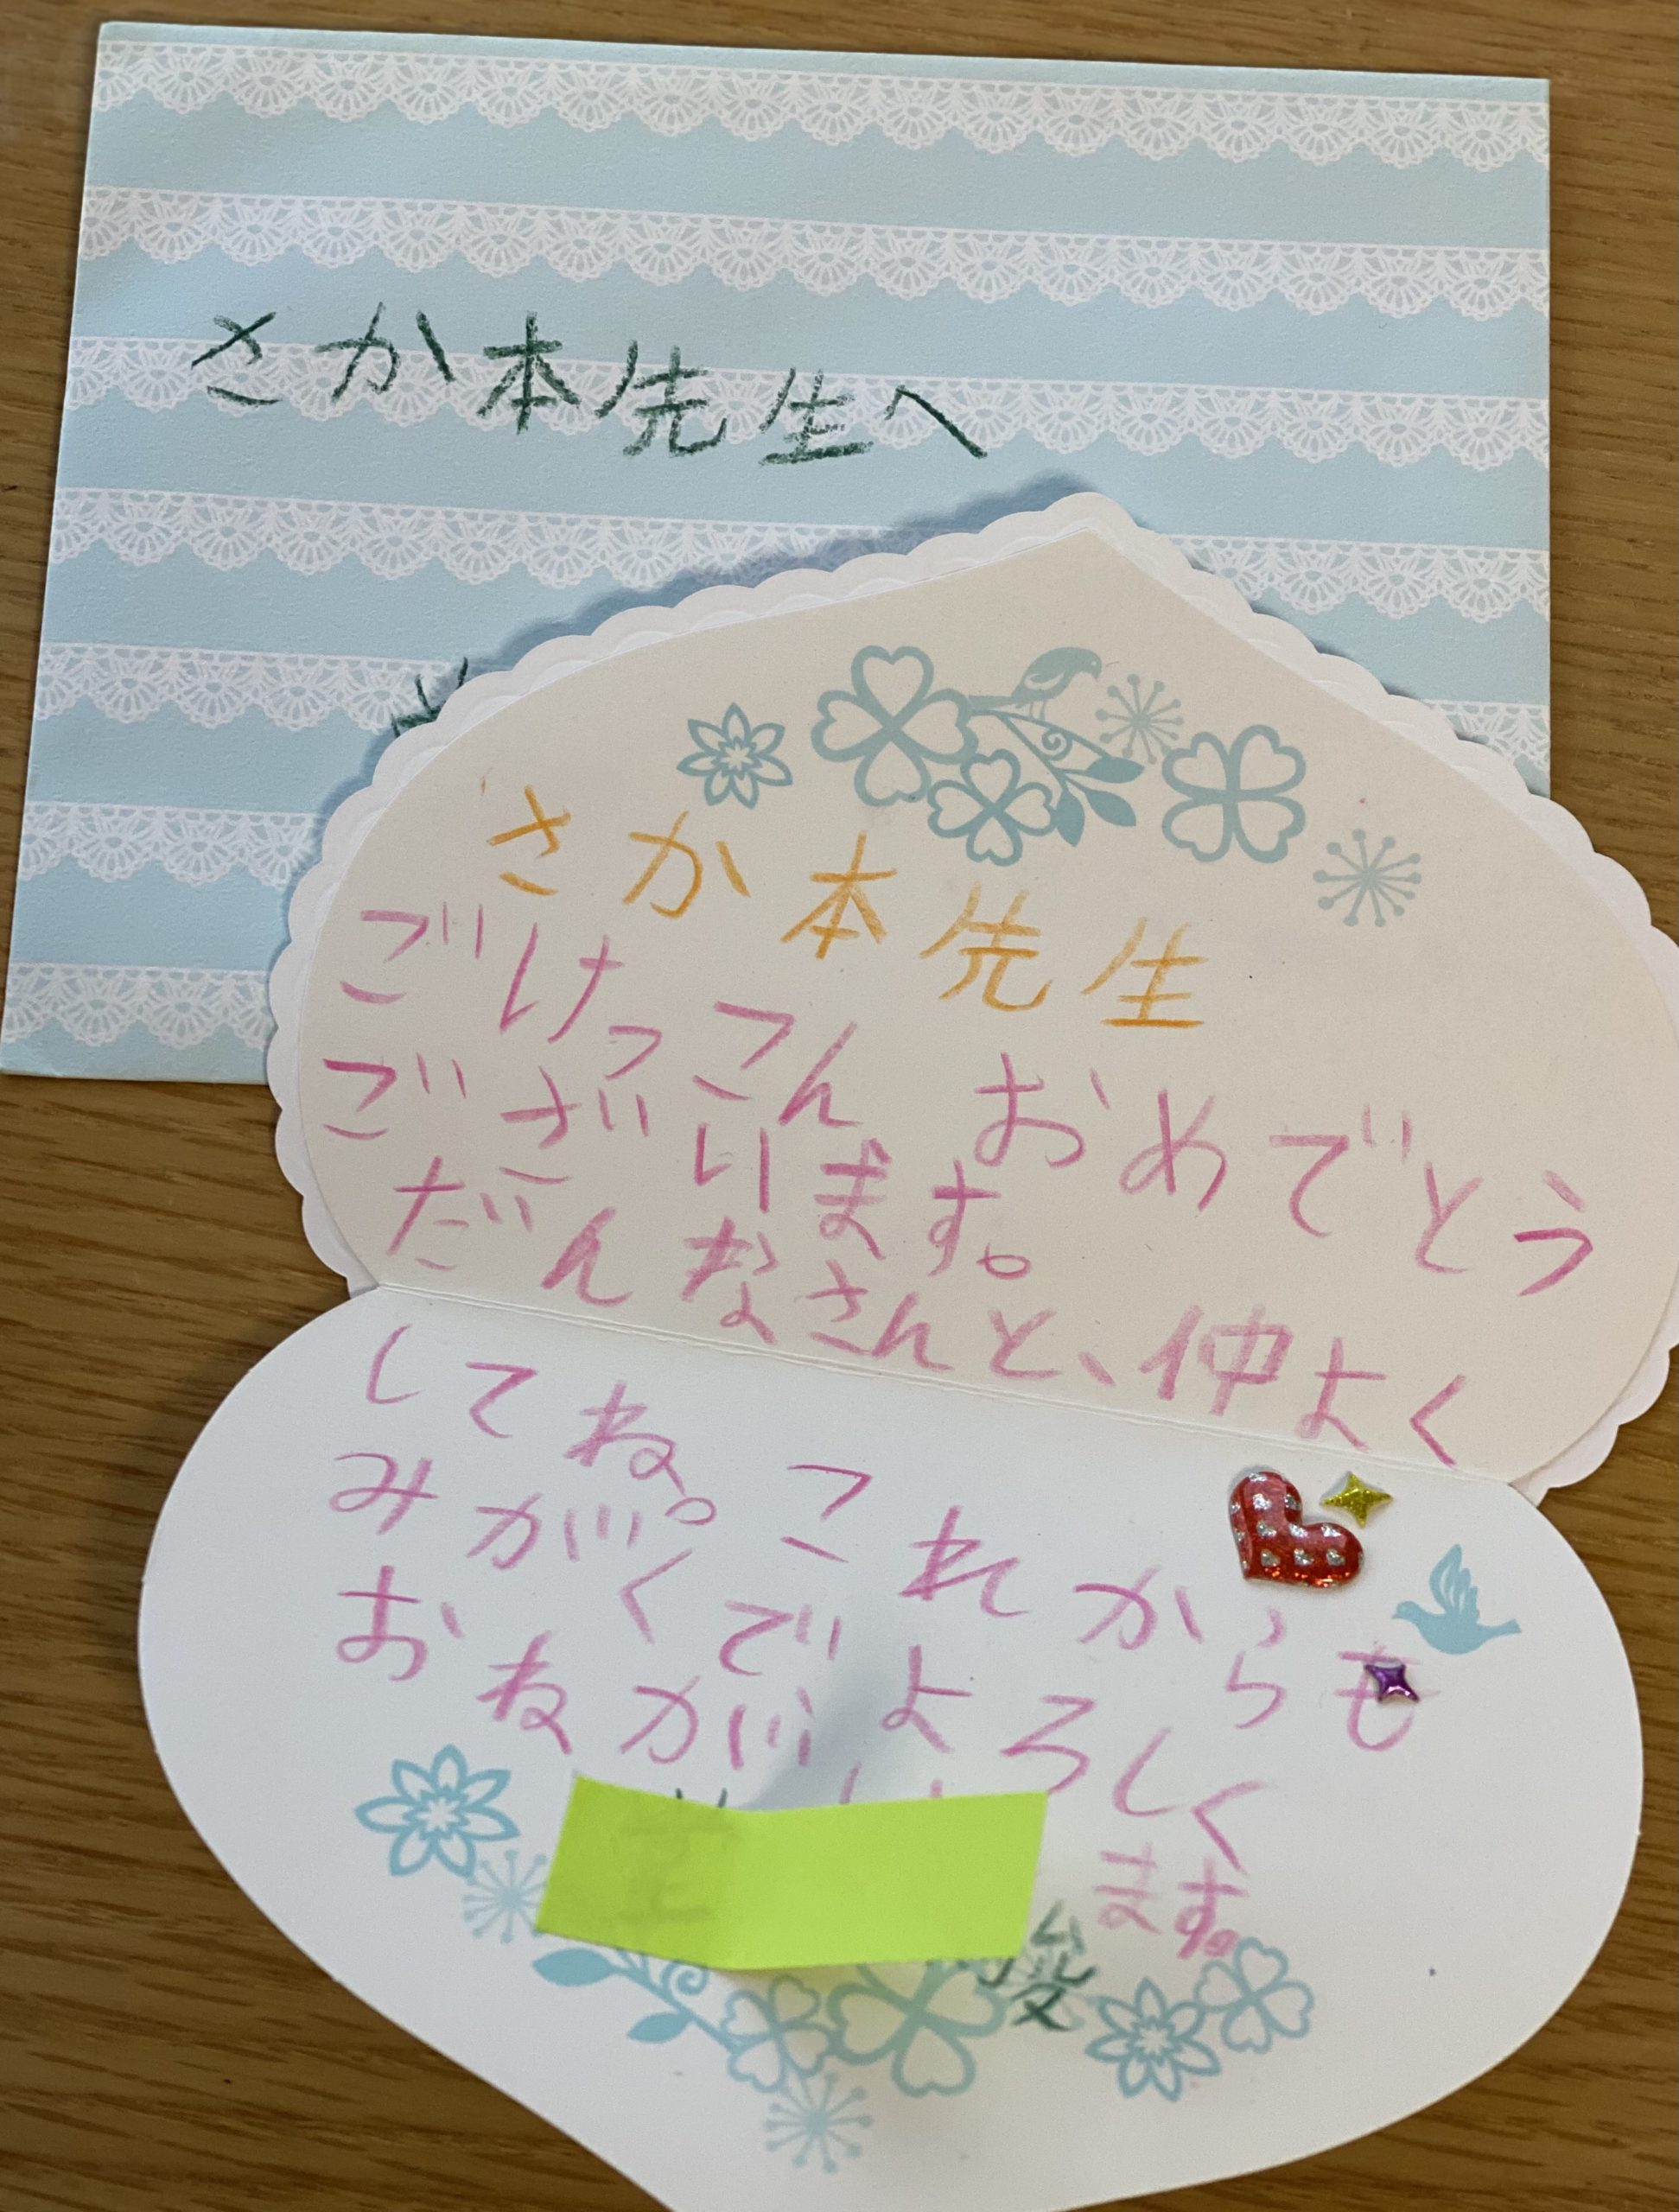 さか本先生へ
さか本先生
ごけっこん おめでとう
ございます。
だんなさんと、仲よく
してね。これからも
みがくでよろしく
おねがいします。